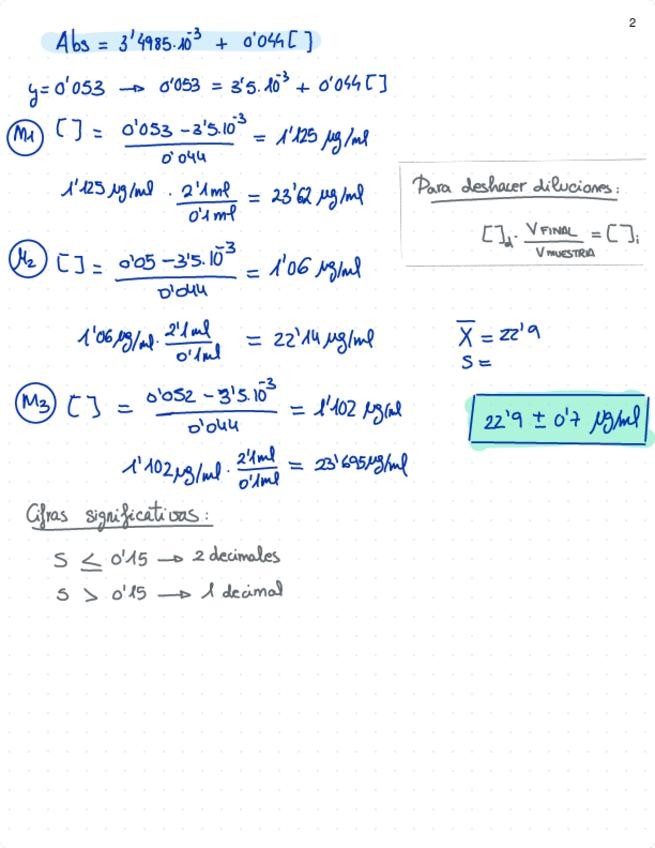 2
Abs = 3'4985.10⁻³ + 0'044[ ]
y=0'053 → 0'053 = 3'5.10⁻³ + 0'044[ ]
M1 [ ] = (0'053 - 3'5.10⁻³)/0'044 = 1'125 μg/ml
1'125 μg/ml . 2'1ml/0'1ml = 23'62 μg/ml
Para deshacer diluciones:
[ ]d. V FINAL/V MUESTRA = [ ]i
M2 [ ] = (0'05 - 3'5.10⁻³)/0'044 = 1'06 μg/ml
1'06 μg/ml. 2'1ml/0'1ml = 22'14 μg/ml
X̅ = 22'9
S =
M3 [ ] = (0'052 - 3'5.10⁻³)/0'044 = 1'102 μg/ml
22'9 ± 0'7 μg/ml
1'102μg/ml. 2'1ml/0'1ml = 23'695μg/ml
Cifras significativas:
S ≤ 0'15 → 2 decimales
S > 0'15 → 1 decimal